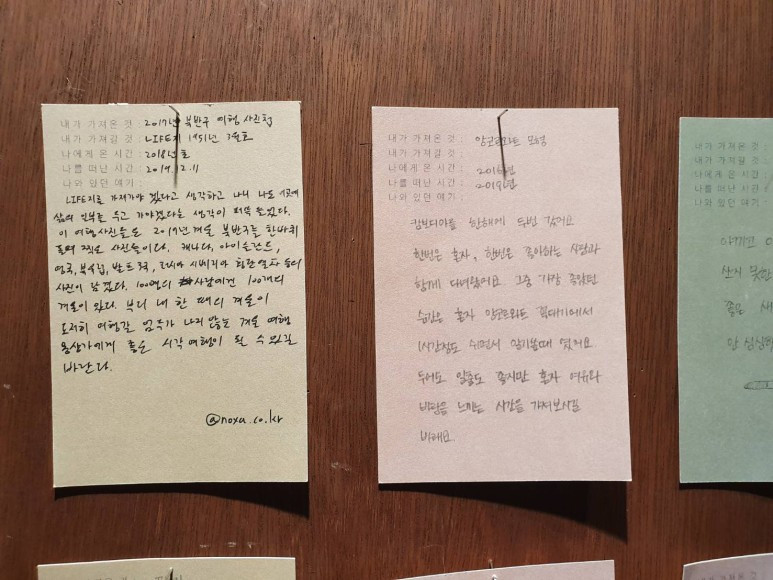 내가 가져온 것 : 2017년 북반구 여행 사진첩
내가 가져갈 것 : LIFE지 1951년 7월호
나에게 온 시간 : 2018년
나를 떠난 시간 : 2019.12.11
나와 있던 얘기 :
LIFE지를 가져가야 겠다고 생각하고 나니 나도
삶의 일부를 두고 가야겠다는 생각이 퍼뜩 들었다.
이 여행사진들은 2017년 겨울 북반구를 한바퀴
돌며 찍은 사진들이다. 캐나다, 아이슬란드,
영국, 북유럽, 발트3국, 러시아 시베리아 횡단열차 등의
사진이 담겼다. 100명의 사람에겐 100개의
겨울이 있다. 부디 내 한 때의 겨울이
도저히 여행길 엄두가 나지 않는 겨울 여행
몽상가에게 좋은 시각 여행이 될 수 있길
바란다.
@noxa.co.kr
내가 가져온 것 : 앙코르와트 모형
내가 가져갈 것 :
나에게 온 시간 : 2016년
나를 떠난 시간 : 2019년
나와 있던 얘기 :
캄보디아를 한해에 두번 갔어요
한번은 혼자, 한번은 좋아하는 사람과
함께 다녀왔어요. 그중 가장 좋았던
순간은 혼자 앙코르와트 꼭대기에서
1시간정도 쉬면서 일기쓸때 였어요
둘이도 일행도 좋지만 혼자 여유와
바람을 느끼는 시간을 가져보시길
바래요.
내가 가져온 것 :
내가 가져갈 것 :
나에게 온 시간 :
나를 떠난 시간 :
나와 있던 얘기 :